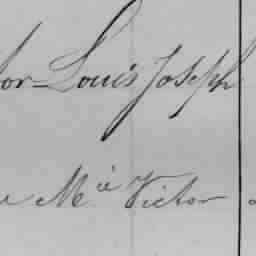 tor - Louis Joseph
e M^ie Victor